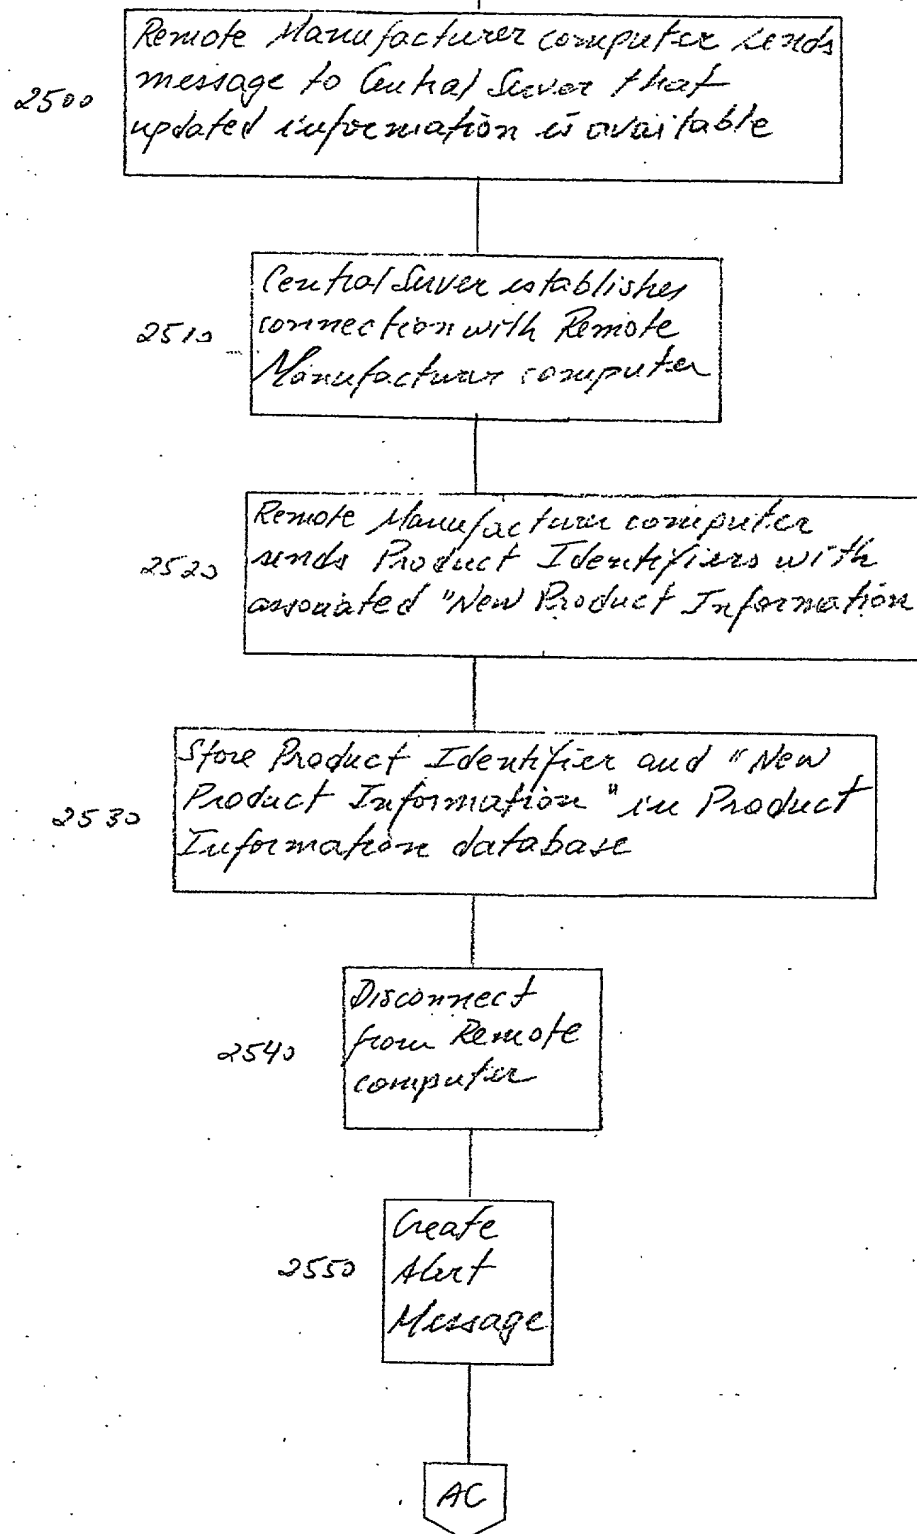 Remote Manufacturer computer sends
message to Central Server that
2500
updated information is available
Central Server establishes
2510
connection with Remote
Manufacturer computer
Remote Manufacturer computer
2520
sends Product Identifiers with
associated "New Product Information
Store Product Identifier and "New
2530
Product Information" in Product
Information database
Disconnect
2540
from Remote
computer
Create
2550
Alert
Message
AC